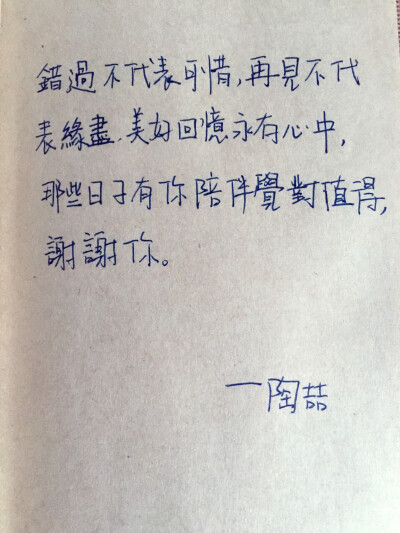 錯過不代表可惜,再見不代
表緣盡.美好回憶永存心中,
那些日子有你陪伴覺對值得,
謝謝你。
一陶喆